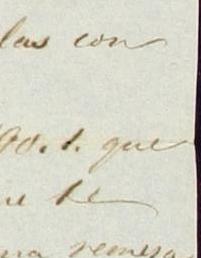 las con
90. s. que
que he
una remesa